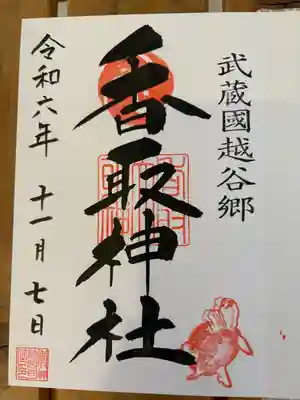 武蔵國越谷郷
香取神社
令和六年 十一月七日